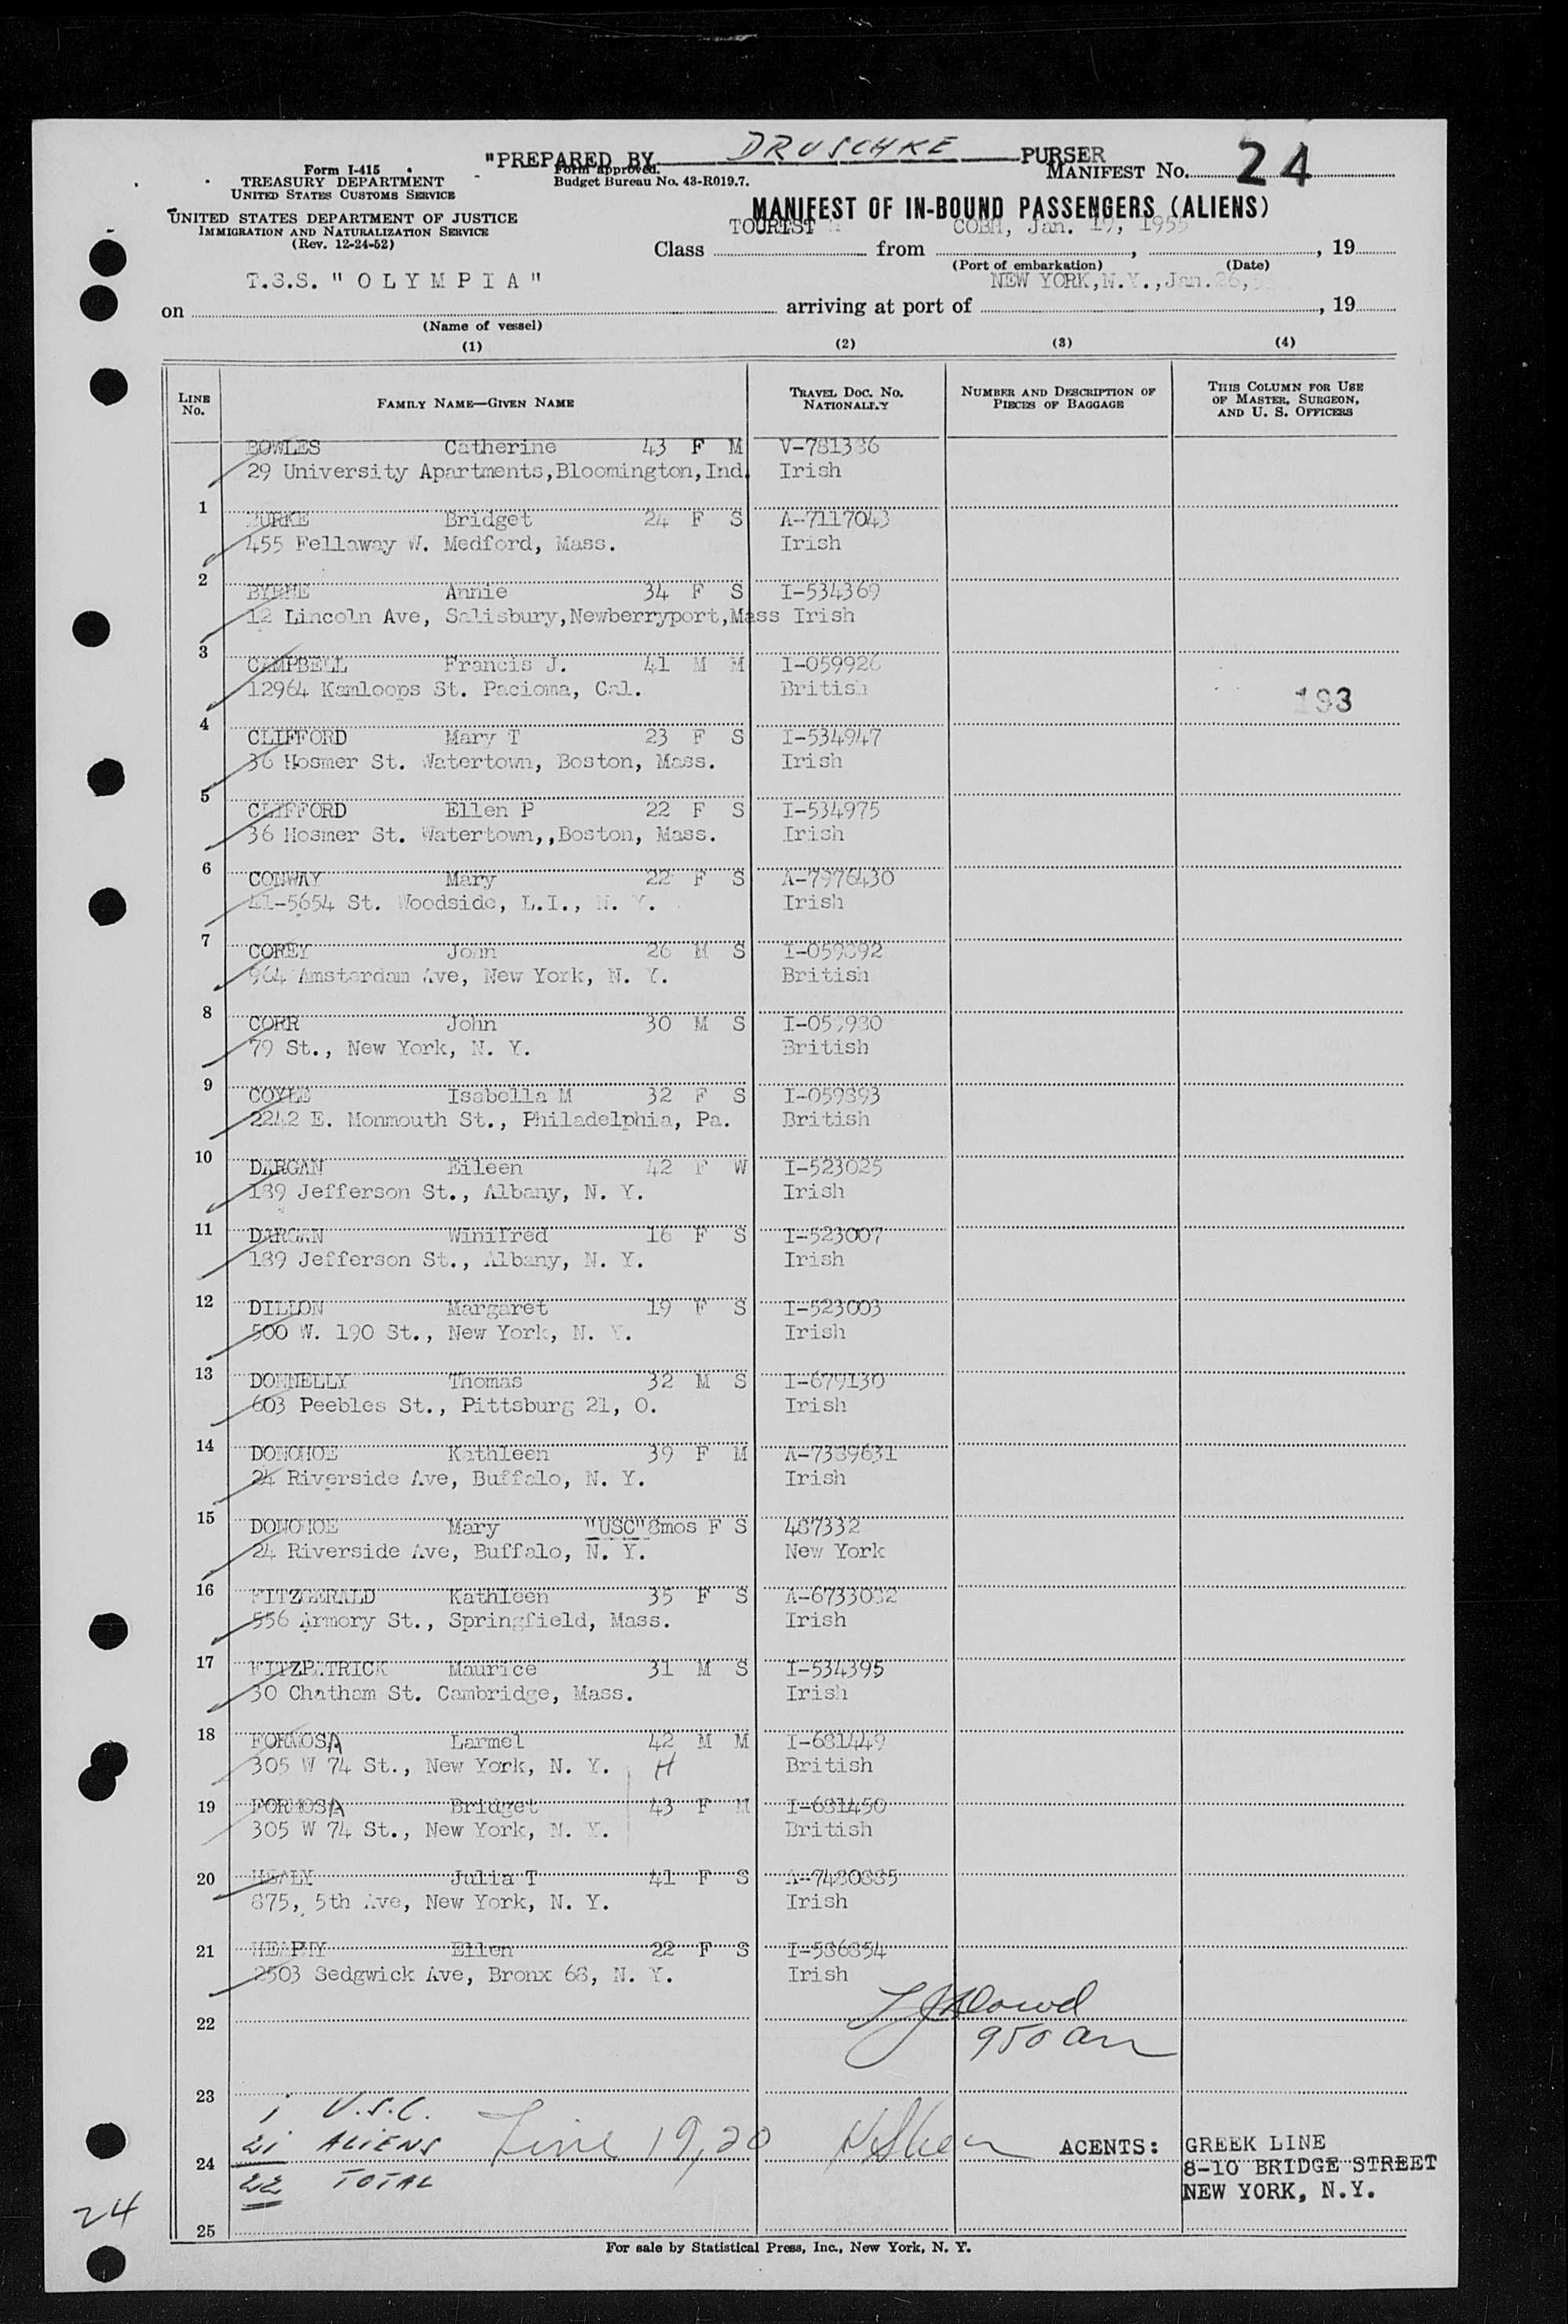 "PREPARED BY DRUSCHKE PURSER
Form I-415
TREASURY DEPARTMENT
UNITED STATES CUSTOMS SERVICE
Form approved.
Budget Bureau No. 43-R019.7.
MANIFEST No. 24
UNITED STATES DEPARTMENT OF JUSTICE
IMMIGRATION AND NATURALIZATION SERVICE
(Rev. 12-24-52)
MANIFEST OF IN-BOUND PASSENGERS (ALIENS)
Class TOURIST from COBH, Jan. 19, 1955, 19
(Port of embarkation) (Date)
on T.S.S. "OLYMPIA" arriving at port of NEW YORK,N.Y.,Jan.26, , 19
(Name of vessel)
(1) (2) (3) (4)
LINE No. FAMILY NAME—GIVEN NAME TRAVEL DOC. No. NATIONALITY NUMBER AND DESCRIPTION OF PIECES OF BAGGAGE THIS COLUMN FOR USE OF MASTER, SURGEON, AND U. S. OFFICERS
BOWLES Catherine 43 F M V-781336
29 University Apartments,Bloomington,Ind. Irish
1
BURKE Bridget 24 F S A-7117043
455 Fellaway W. Medford, Mass. Irish
2
BYRNE Annie 34 F S I-534369
12 Lincoln Ave, Salisbury,Newberryport,Mass Irish
3
CAMPBELL Francis J. 41 M M I-059926
12964 Kamloops St. Pacioma, Cal. British
193
4
CLIFFORD Mary T 23 F S I-534947
36 Hosmer St. Watertown, Boston, Mass. Irish
5
CLIFFORD Ellen P 22 F S I-534975
36 Hosmer St. Watertown,,Boston, Mass. Irish
6
CONWAY Mary 22 F S A-7976430
41-5654 St. Woodside, L.I., N. Y. Irish
7
COREY John 26 M S I-059892
964 Amsterdam Ave, New York, N. Y. British
8
CORR John 30 M S
79 St., New York, N. Y. British
9
COYLE Isabella M 32 F S I-059893
2242 E. Monmouth St., Philadelphia, Pa. British
10
DARGAN Eileen 42 F W I-523025
189 Jefferson St., Albany, N. Y. Irish
11
DARGAN Winifred 16 F S I-523007
189 Jefferson St., Albany, N. Y. Irish
12
DILLON Margaret 19 F S I-523003
500 W. 190 St., New York, N. Y. Irish
13
DONNELLY Thomas 32 M S I-679130
603 Peebles St., Pittsburg 21, O. Irish
14
DONOHOE Kathleen 39 F M A-7389631
24 Riverside Ave, Buffalo, N. Y. Irish
15
DONOHOE Mary "USC" 8mos F S 487332
24 Riverside Ave, Buffalo, N. Y. New York
16
FITZGERALD Kathleen 35 F S A-6733032
556 Armory St., Springfield, Mass. Irish
17
FITZPATRICK Maurice 31 M S I-534395
30 Chatham St. Cambridge, Mass. Irish
18
FORMOSA Larmel 42 M M I-681449
305 W 74 St., New York, N. Y. H British
19
FORMOSA Bridget 43 F M I-681450
305 W 74 St., New York, N. Y. British
20
HEALY Julia T 41 F S A-7480885
875, 5th Ave, New York, N. Y. Irish
21
HEAPHY Ellen 22 F S I-586854
2503 Sedgwick Ave, Bronx 68, N. Y. Irish
22
950 am
23
1 U.S.C.
21 ALIENS Line 19,20
24
22 TOTAL
AGENTS: GREEK LINE
8-10 BRIDGE STREET
NEW YORK, N.Y.
24
25
For sale by Statistical Press, Inc., New York, N. Y.